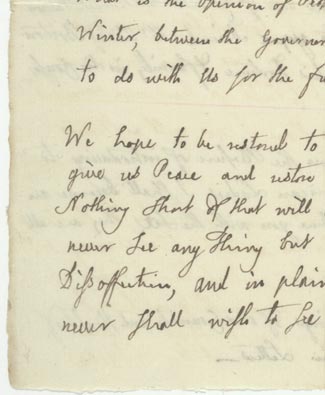 is the opinion of
Winter, between the Governor
to do with Us for the fu
We hope to be restored to
give us Peace and restore
Nothing Short of that will
never See any Thing but
Dissoffection, and in plain
never Shall wish to See